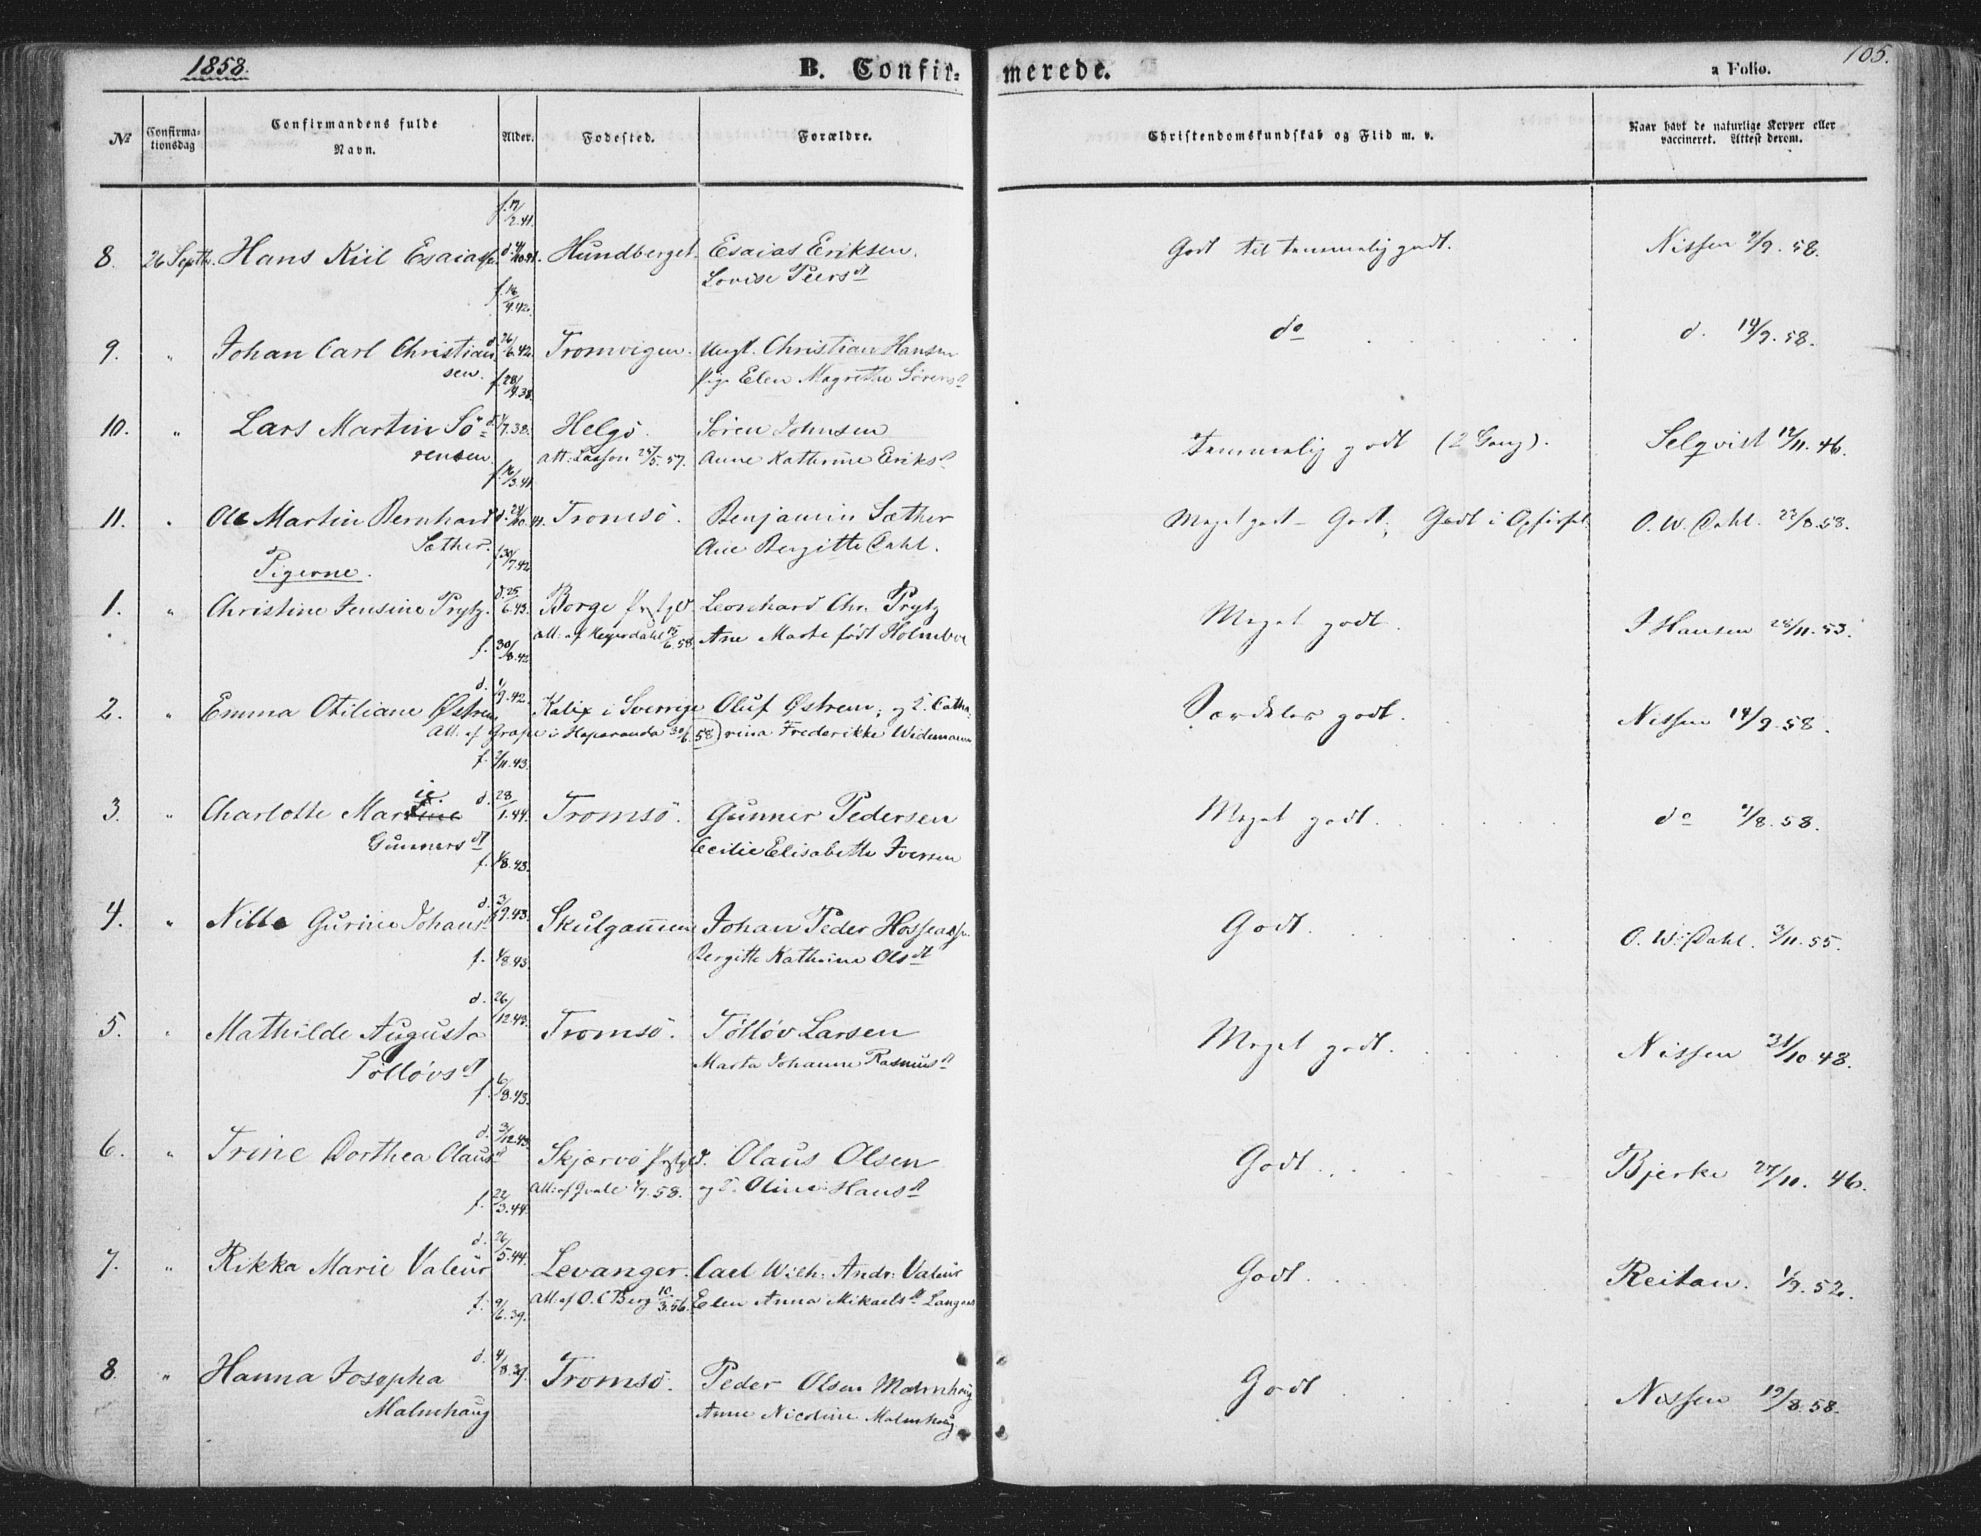 1858.
B. Confir- merede.
105.
a Folio.
No Confirmationsdag Confirmandens fulde Navn. Alder. Fodested. Forældre. Christendomskundskab og Flid m. v. Naar havt de naturlige Kopper eller vaccineret. Attest derom.
f. 17/2.41.
8. 26 Septbr. Hans Kiil Esaiass. d. 4/10.41. Hundberget. Esaias Eriksen. Godt til temmelig godt. Nissen 9/9.58.
Lovise Peersdt
f. 16/4.42.
9. " Johan Carl Christian d. 26/6.42. Tromvigen. Ungk. Christian Hansen do d. 14/9.58.
sen. pige Elen Magrethe Sørensdt
f. 28/4.38.
10. " Lars Martin Sö= d. 1/7.38. Helgö. Sören Johnsen Temmelig godt (2 Gang). Selqvist 12/11.46.
rensen att: Lasson 24/5.57. Anne Kathrine Eriksdt
f. 16/3.41
11. " Ole Martin Bernhard d. 24/10.41. Tromsö. Benjamin Sæther Meget godt - Godt; Godt i Opførsel O. W. Dahl. 22/8.58.
Sæther. Ane Bergitte Dahl.
Pigerne.
f. 30/7.42
1. " Christine Jensine Prytz. d. 25/6.43. Borge Prstgd. Leonhard Chr. Prytz Meget godt. J Hansen 28/11.53.
att: af Heyerdahl 15/6.58. Ane Marte født Holmboe
f. 30/8.42
2. " Emma Otiliane Østrem d. 1/9.42. Kalix i Sverrige Oluf Østrem; og H. Catha= Særdeles godt. Nissen 14/9.58.
Att. af Grape i Haparanda 30/6.58) rina Frederikke Widemann
f. 2/11.43.
3. " Charlotte Marie d. 28/1.44. Tromsö. Gunner Pedersen Meget godt. do 9/8.58.
Gunnersdt Cecilie Elisabeth Iversen
f. 4/8.43.
4. " Nille Gurine Johansdt d. 3/9.43. Skulgammen Johan Peder Hosseas. Godt. O. W. Dahl. 3/11.55.
Bergitte Kathrine Olsdt
f. 4/8.43.
5. " Mathilde Augusta d. 26/12.43. Tromsö. Tölløv Larsen Meget godt. Nissen 31/10.48.
Tølløvsdt Marta Johanne Rasmusdt
f. 6/8.43.
6. " Trine Dorthea Olausdt d. 3/12.43. Skjærvö Prstgd. Olaus Olsen Godt. Bjerke 27/10.46.
Att: af Qvale 1/7.58. og H. Oline Hansdt
f. 22/3.44.
7. " Rikka Marie Valeur d. 26/5.44. Levanger. Carl Wilh. Andr. Valeur Godt. Reitan. 1/9.52.
Att. af O. C Berg 10/3.56. Elen Anna Mikaelsdt Langaas
f. 9/6.39.
8. " Hanna Josepha d. 4/8.39. Tromsö. Peder Olsen Malmhaug Godt Nissen 19/8.58.
Malmhaug Anne Nicoline Malmhaug